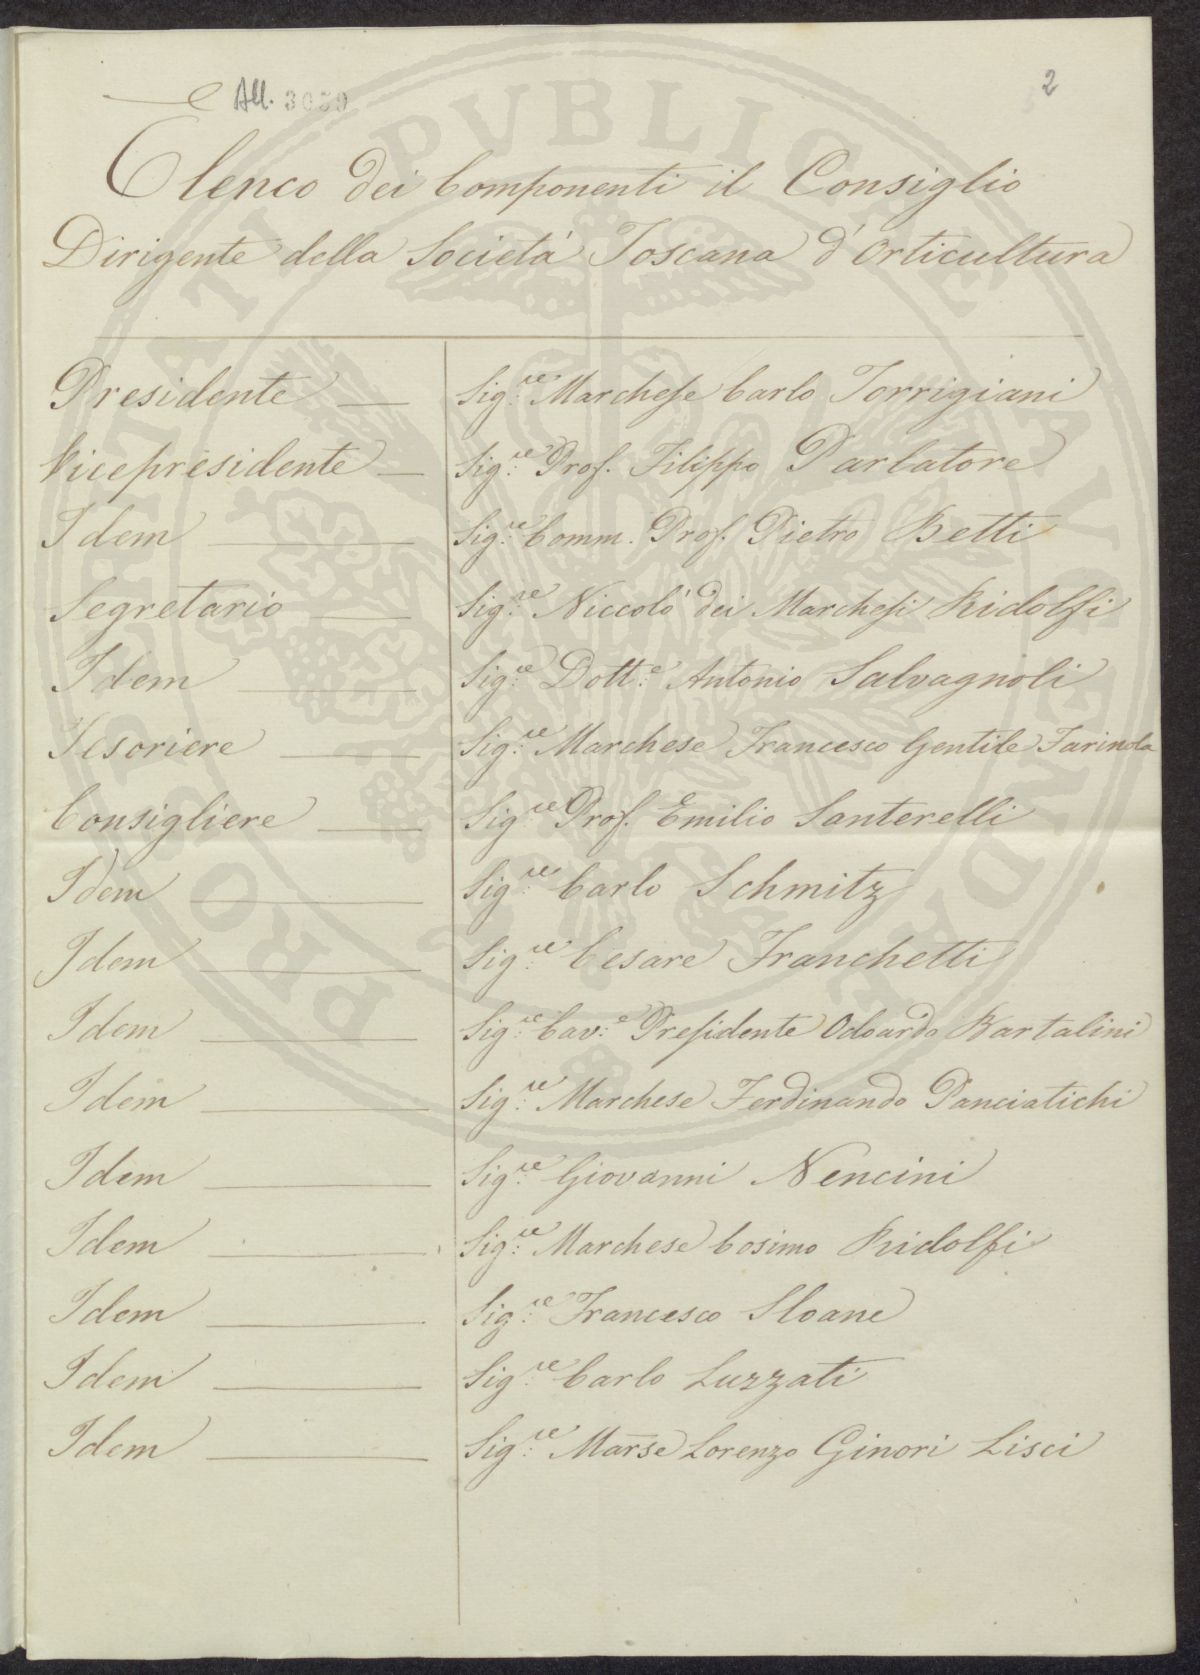 All. 3059
2
Elenco dei Componenti il Consiglio
Dirigente della Società Toscana d'Orticultura
Presidente — Sig.re Marchese Carlo Torrigiani
Vicepresidente — Sig.re Prof. Filippo Parlatore
Idem — Sig.re Comm. Prof. Pietro Betti
Segretario — Sig.re Niccolò dei Marchesi Ridolfi
Idem — Sig.re Dott.e Antonio Salvagnoli
Tesoriere — Sig.re Marchese Francesco Gentile Farinola
Consigliere — Sig.re Prof. Emilio Santerelli
Idem — Sig.re Carlo Schmitz
Idem — Sig.re Cesare Franchetti
Idem — Sig.re Cav.e Presidente Odoardo Bartalini
Idem — Sig.re Marchese Ferdinando Panciatichi
Idem — Sig.re Giovanni Nencini
Idem — Sig.re Marchese Cosimo Ridolfi
Idem — Sig.re Francesco Sloane
Idem — Sig.re Carlo Luzzati
Idem — Sig.re Marse Lorenzo Ginori Lisci
PROSPERITATI PVBLICAE AVGENDAE